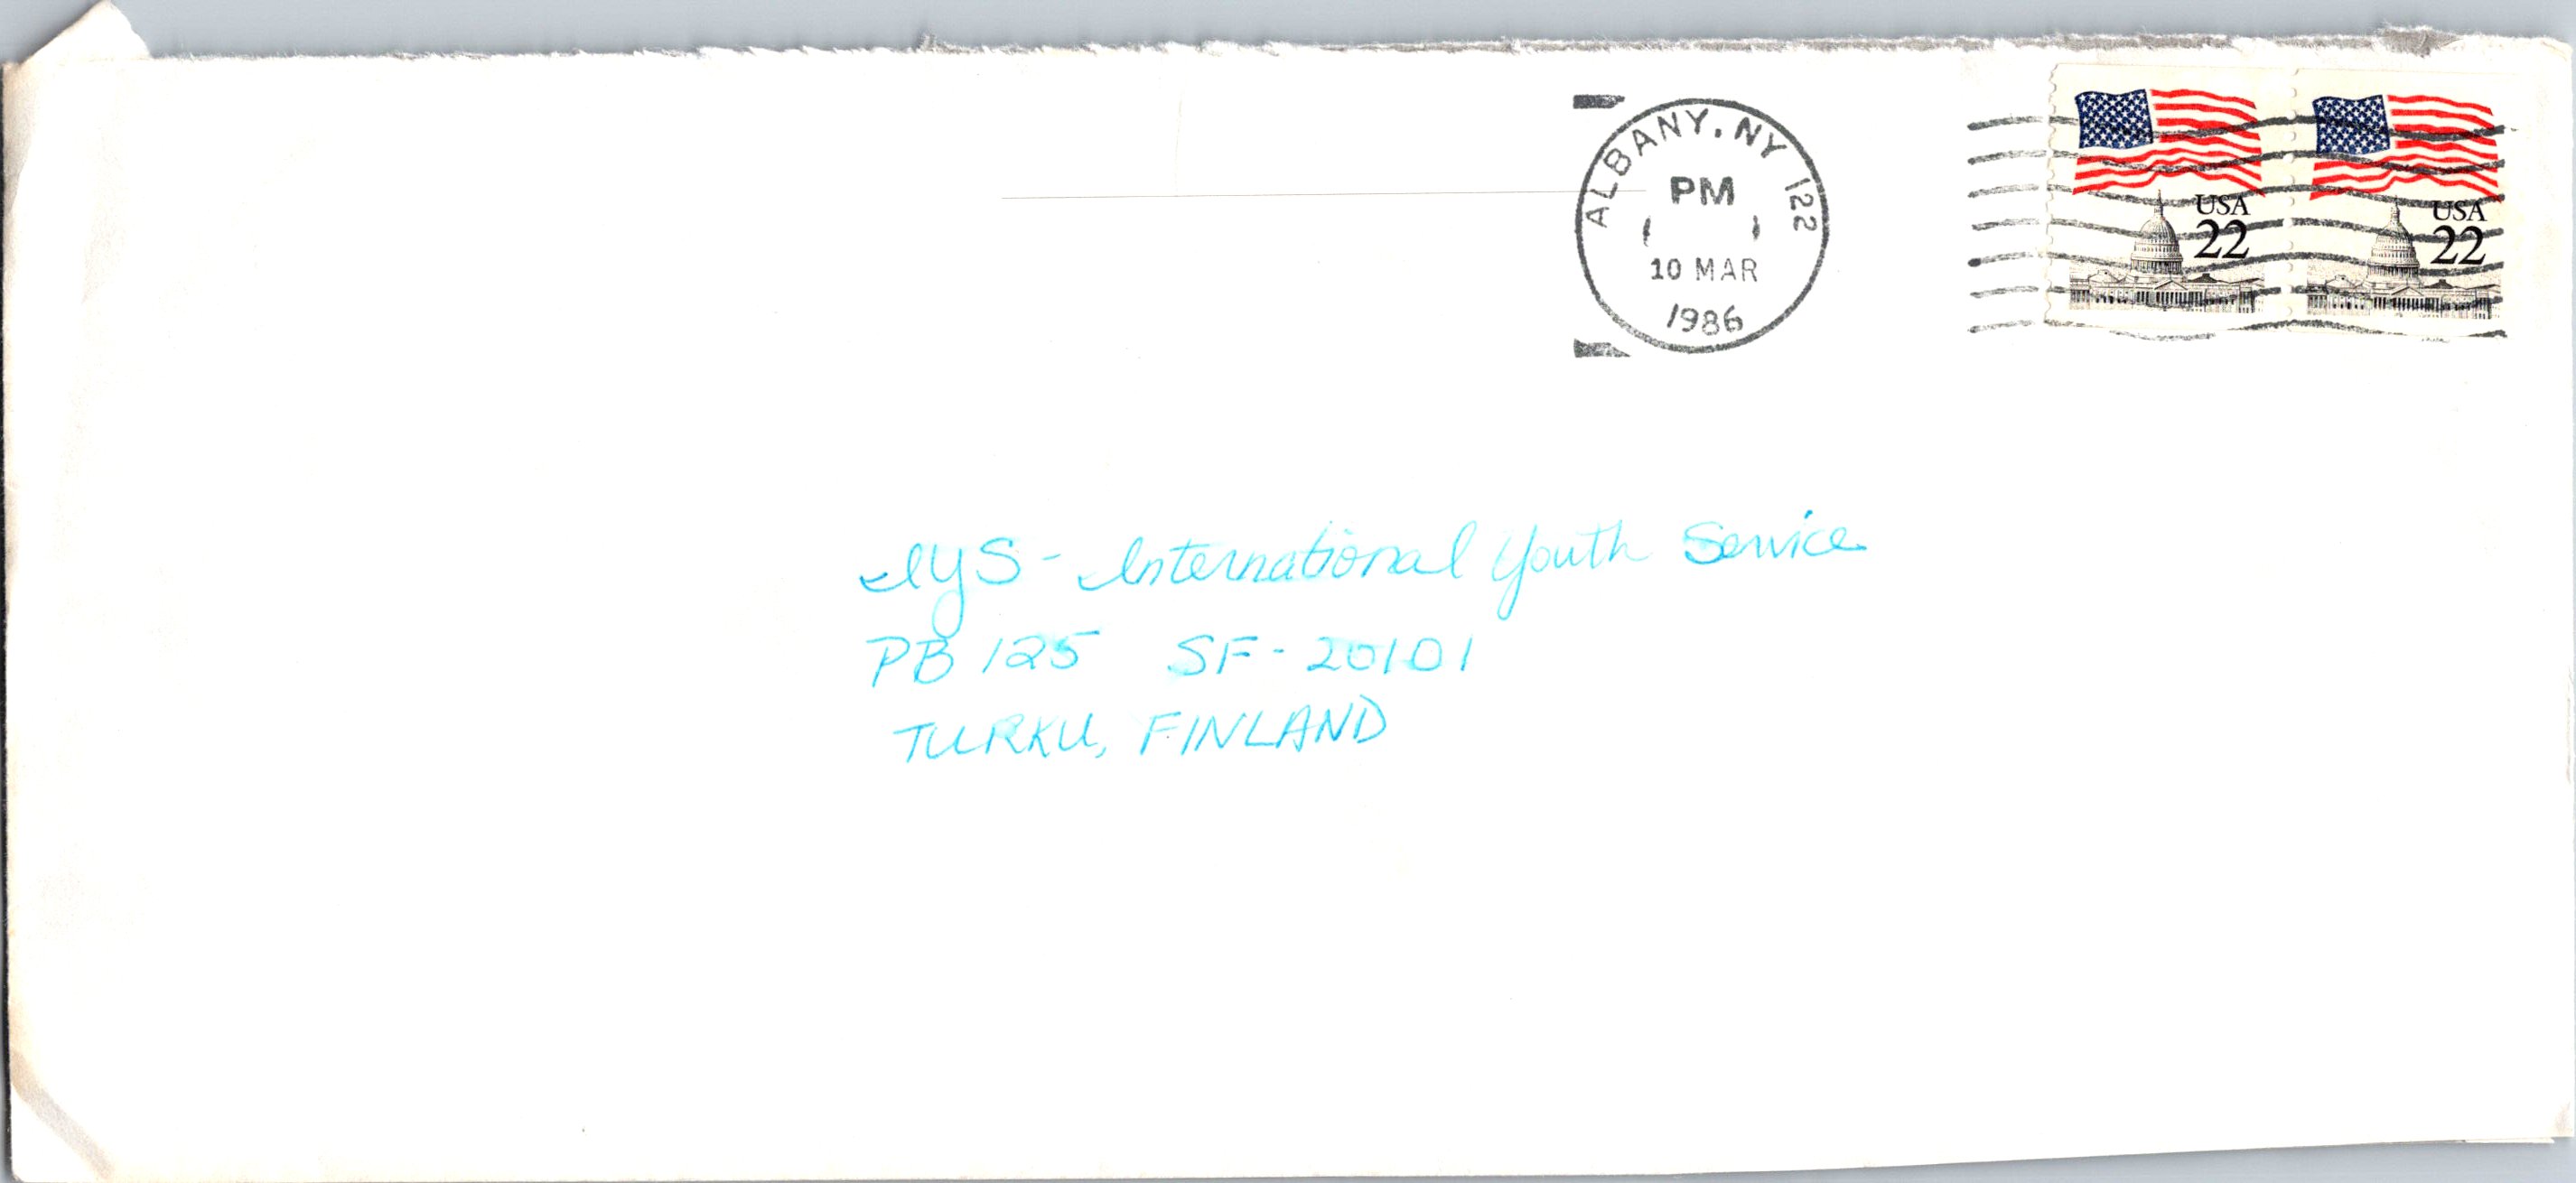 ALBANY, NY 122
PM
10 MAR
1986
USA
22
USA
22
IYS - International Youth Service
PB 125 SF - 20101
TURKU, FINLAND